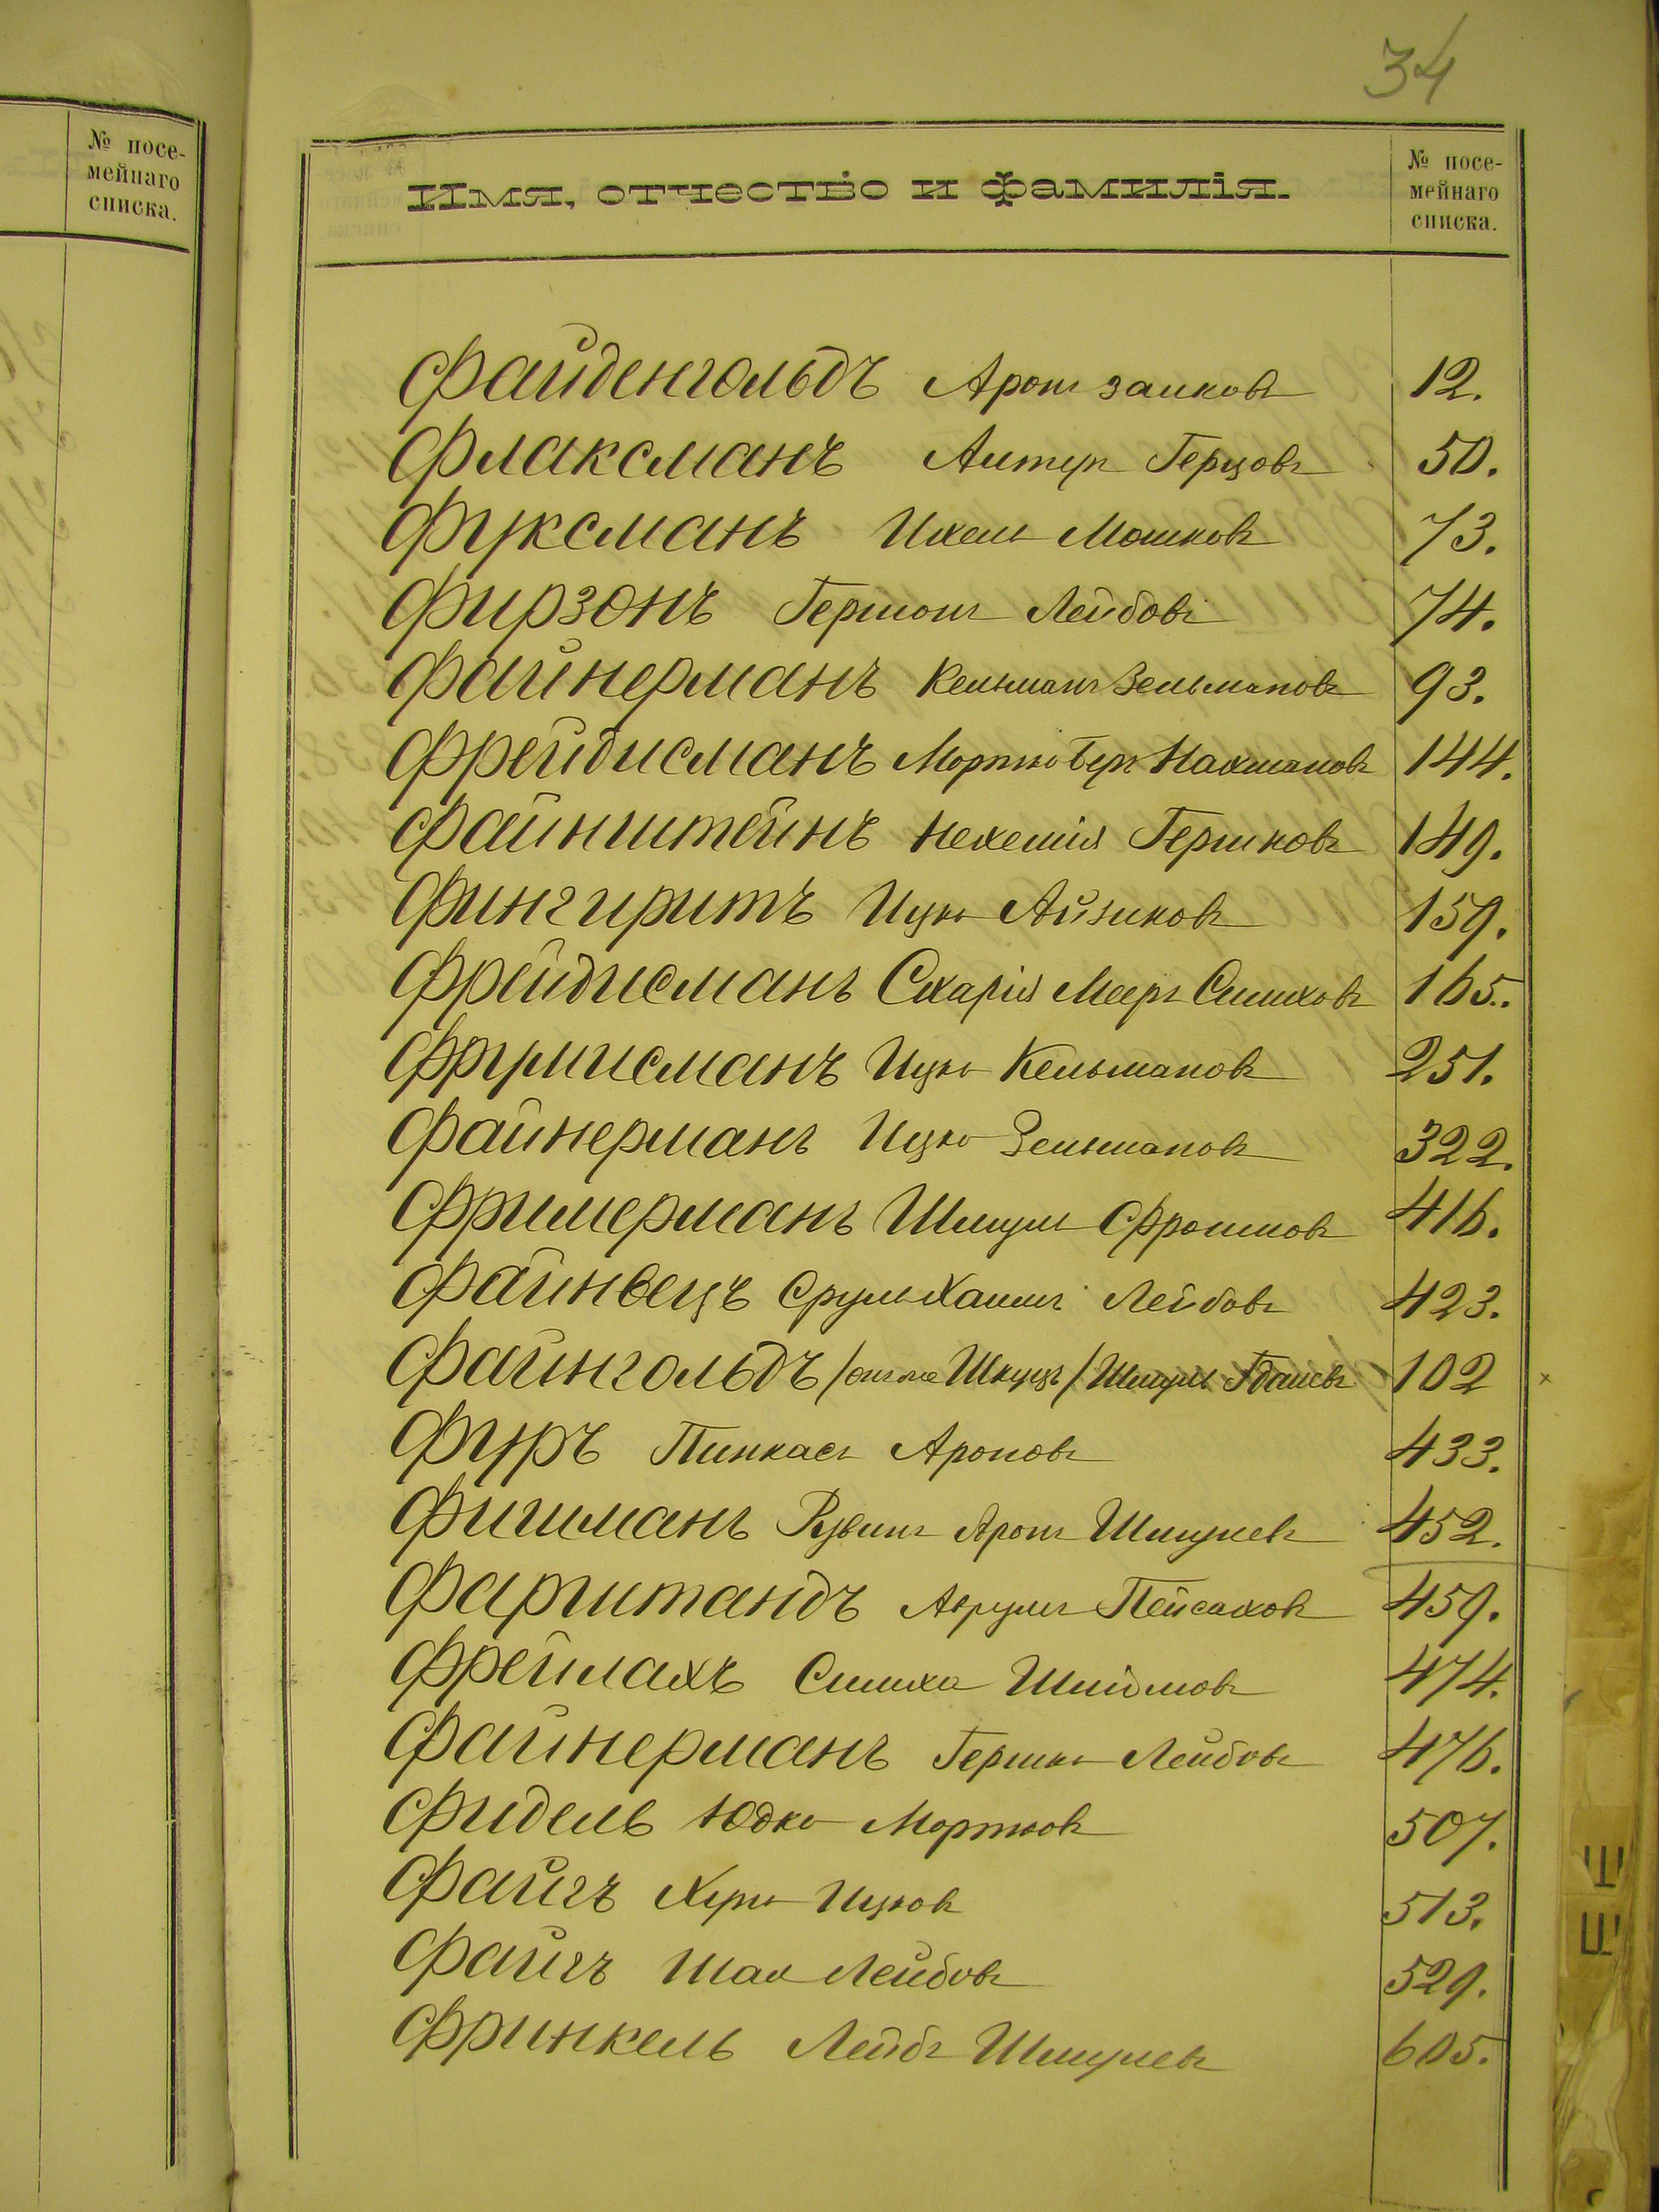 34
№ посе-
мейнаго
списка.
Имя, отчество и фамилія.
№ посе-
мейнаго
списка.
Файденгольдъ Аронъ 12.
Флаксманъ Герцовъ 50.
Фуксманъ Ихель Мошковъ 73.
Фирзонъ Гершонъ Лейбовъ 74.
Файнерманъ Кельманъ Зельмановъ 93.
Фрейдисманъ Мортко Беръ Нахмановъ 144.
Файнштейнъ Нехемія Гершковъ 149.
Фингиритъ Ицко Айзиковъ 159.
Фрейдисманъ Схарія Мееръ Симховъ 165.
Фрумисманъ Ицко Кельмановъ 251.
Файнерманъ Ицко Зельмановъ 322.
Фримерманъ Шмуль Фроимовъ 416.
Файнвецъ Сруль Хаимъ Лейбовъ 423.
Файнгольдъ /онъ же Шкуцъ/ Шмуль 102
Фуръ Пинкасъ Ароновъ 433.
Фишманъ Рувинъ Аронъ Шмулевъ 452.
Фарштандъ Аврумъ Пейсаховъ 459.
Фрейлахъ Симха Шлiомовъ 474.
Файнерманъ Гершко Лейбовъ 476.
Фидель Юдко Мортковъ 507.
Файгъ Ицковъ 513.
Файгъ Шая Лейбовъ 529.
Фринкель Лейбъ Шмулевъ 605.